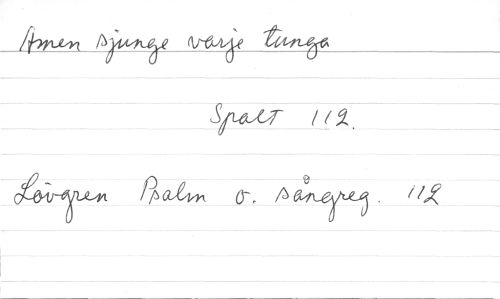 Amen sjunge varje tunga
Spalt 112.
Lövgren Psalm o. sångreg. 112